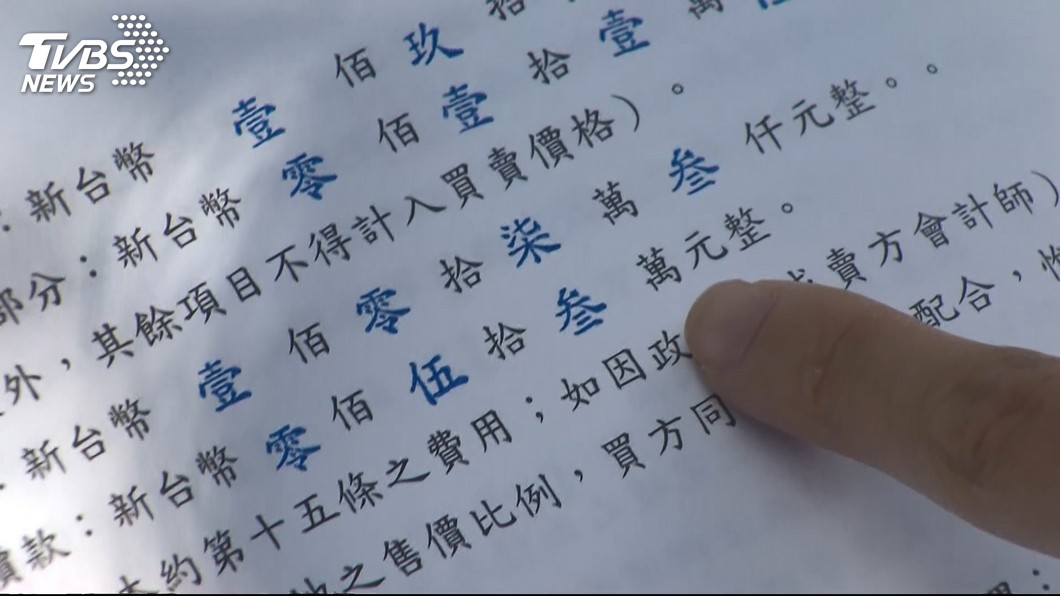 TVBS NEWS
：新台幣 壹 佰 玖 拾
部分：新台幣 零 佰 壹 拾 壹 萬
外，其餘項目不得計入買賣價格）。
新台幣 壹 佰 零 拾 柒 萬 叁 仟元整。。
款：新台幣 零 佰 伍 拾 叁 萬元整。
本約第十五條之費用；如因政 賣方會計師）
之售價比例，買方同 配合，